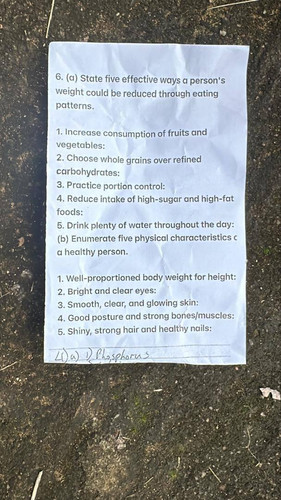 6. (a) State five effective ways a person's
weight could be reduced through eating
patterns.
1. Increase consumption of fruits and
vegetables:
2. Choose whole grains over refined
carbohydrates:
3. Practice portion control:
4. Reduce intake of high-sugar and high-fat
foods:
5. Drink plenty of water throughout the day:
(b) Enumerate five physical characteristics
a healthy person.
1. Well-proportioned body weight for height:
2. Bright and clear eyes:
3. Smooth, clear, and glowing skin:
4. Good posture and strong bones/muscles:
5. Shiny, strong hair and healthy nails:
a) 1) Phosphorus